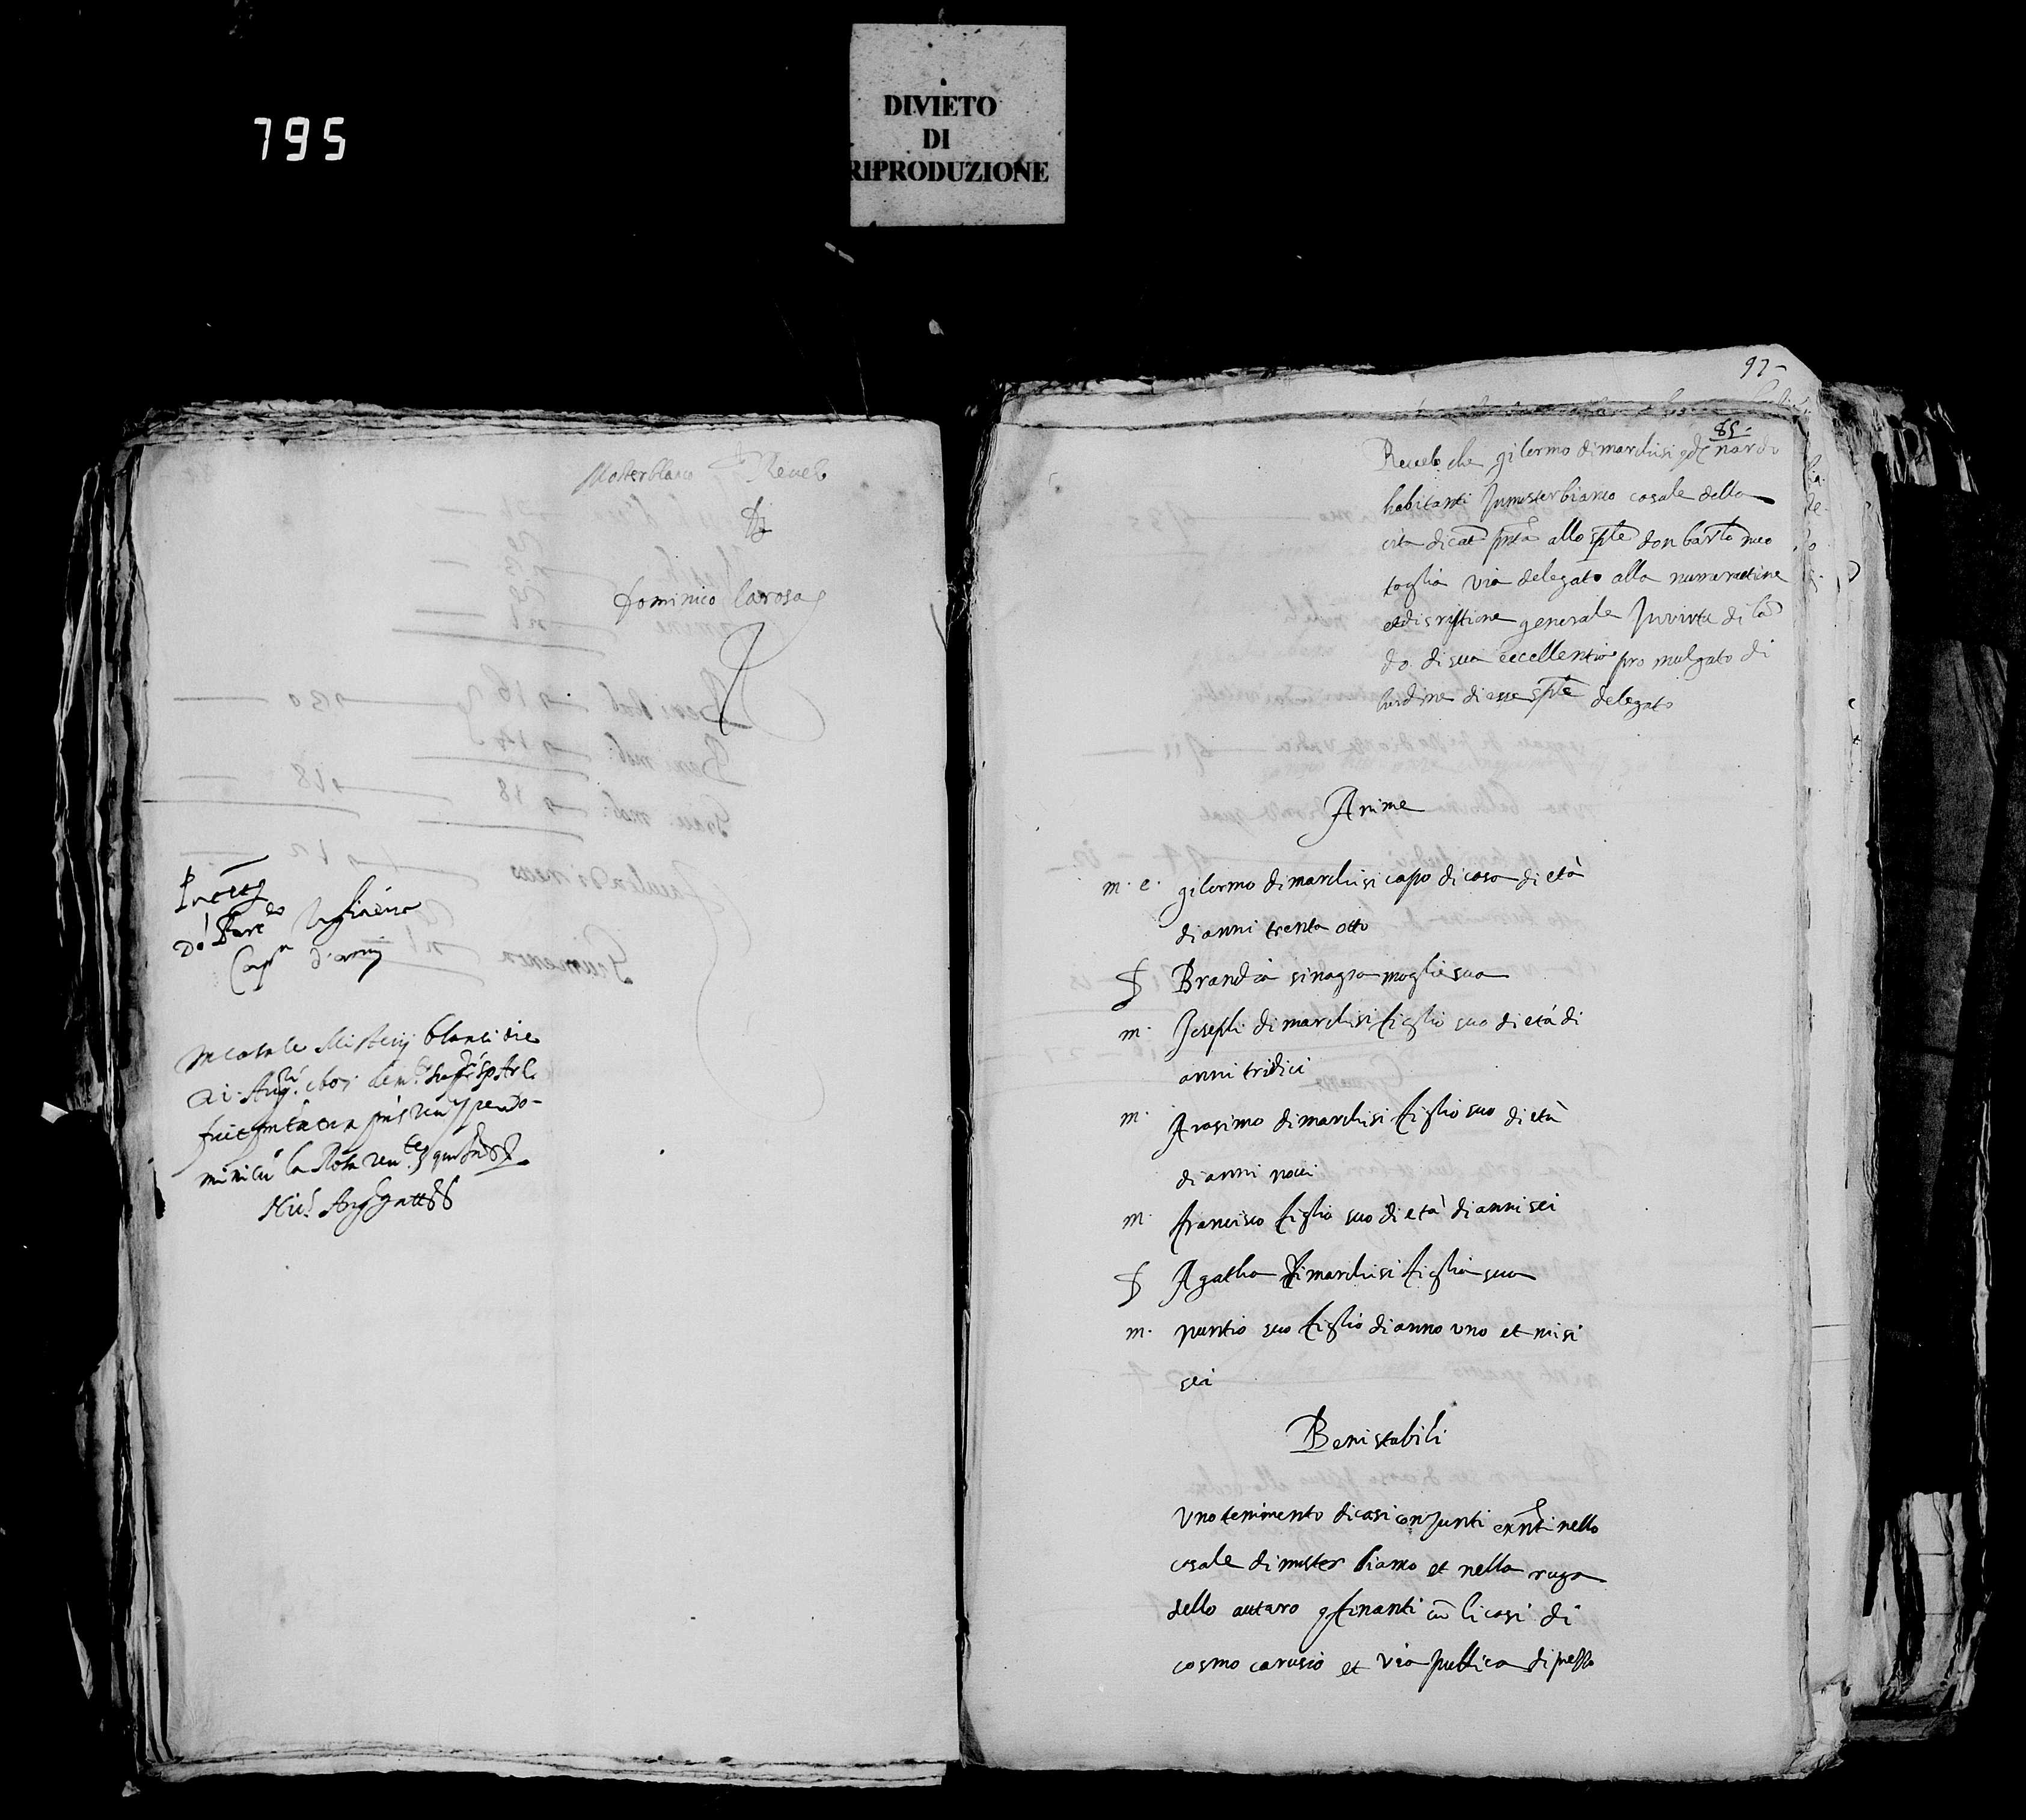 795
DIVIETO
DI
RIPRODUZIONE
Masterblanco Revelo
di
dominico larosa
Capn d'armi
In casale Misterij blanci die
la Rosa
97
85
Revelo che gilormo dimarchisi qdam nardo
habitanti Jnmisterbianco casale della
cita dicata pnta allo sple don bartolo meo
taglia via delegato alla numeratione
et discrittione generale Jnvirtu di ban
do di sua eccellentia pro mulgato di
hordine di esso sple delegato
Anime
m. c. gilormo dimarchisi capo di casa di età
di anni trenta otto
f Brandia sinagra moglie sua
m. Josephi di marchisi figlio suo di età di
anni tridici
m. Arasimo dimarchisi figlio suo di età
di anni novi
m. francisco figlio suo di età di anni sei
f Agatha dimarchisi figlia sua
m. nuntio suo figlio di anno uno et misi
sei
Beni stabili
Uno tenimento di casi conJunti exnti nello
casale di mister bianco et nella ruga
dello autaro qfinanti cu li casi di
cosmo carusio et via publica di prezzo